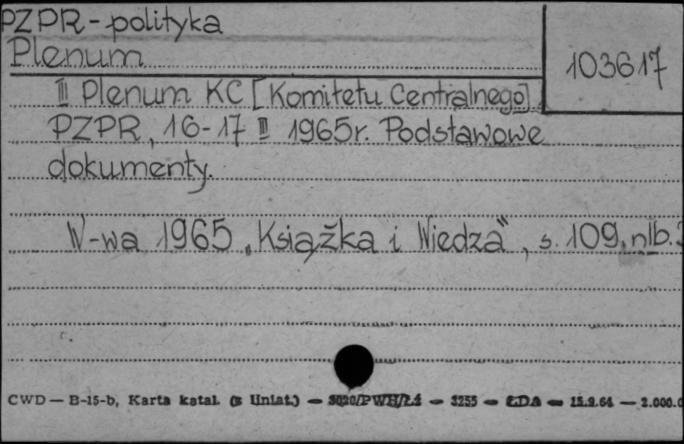 PZPR-polityka
Plenum
103617
III Plenum KC [Komitetu Centralnego]
PZPR, 16-17 II 1965r. Podstawowe
dokumenty.
W-wa 1965 „Książka i Wiedza", s. 109, nlb.
CWD — B-15-b, Karta katal. (s Uniat.) — 3255 — ŁDA — 15.9.64 — 2.000.0